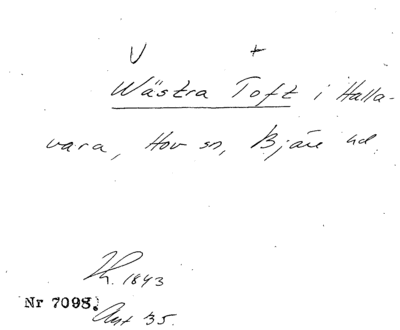 V +
Wästra Toft i Halla-
vara, Hov sn, Bjäre hd.
Lh. 1843
Nr 7098.
Ant 35.